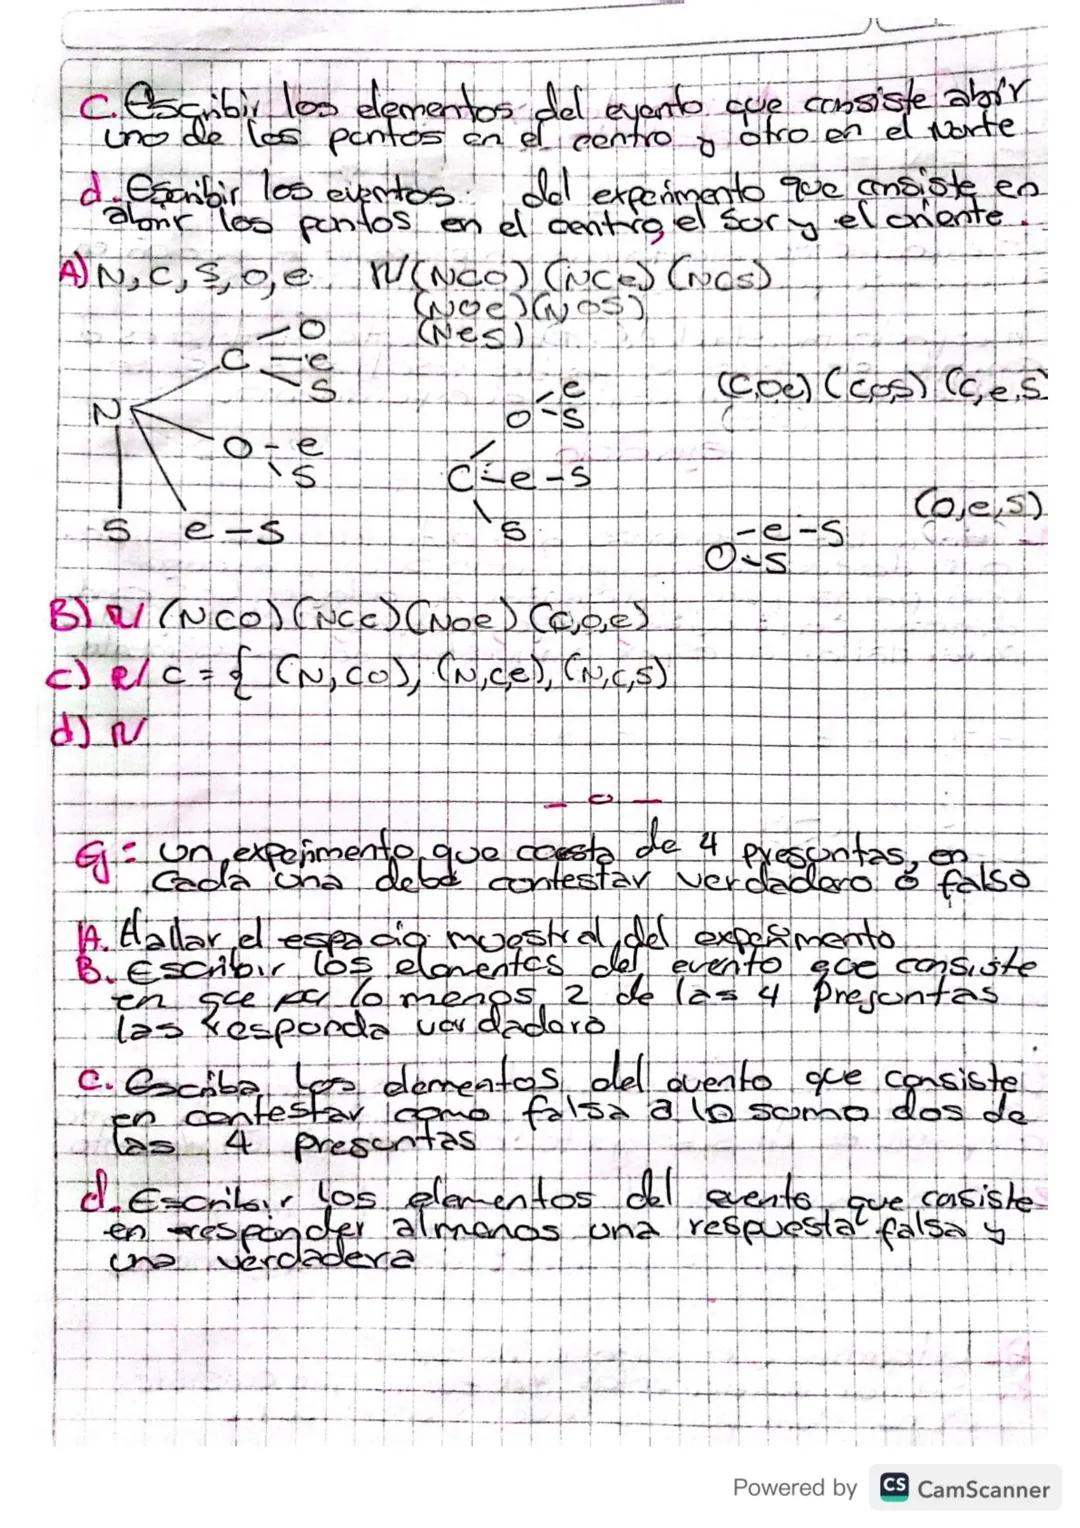 C. Escribir los elementos del evento que consiste abrir
uno de los puntos en el centro y otro en el Norte
d. Escribir los eventos del experimento que consiste en
abrir los puntos en el centro, el Sur y el oriente.
A) N, C, S, O, e R/ (NCO) (NCe) (NCS)
(NOe) (NOS)
(NeS)
O
C e
S
N
O - e
S
S e - S
e
O - S
C - e - S
S
(COe) (COS) (C,e,S)
(O,e,S)
- e - S
O - S
B) R/ (NCO) (NCe) (NOe) (C,O,e)
C) R/ C = { (N,CO), (N,C,e), (N,C,S)
d) R/
- o -
G = Un experimento que consta de 4 preguntas, en
cada una debe contestar verdadero o falso
A. Hallar el espacio muestral del experimento
B. Escribir los elementos del evento que consiste
en que por lo menos 2 de las 4 Preguntas
las responda verdadero
C. Escriba los elementos del evento que consiste
en contestar como falsa a lo sumo dos de
las 4 preguntas
d. Escribir los elementos del evento que consiste
en responder almenos una respuesta falsa y
una verdadera
Powered by CS CamScanner